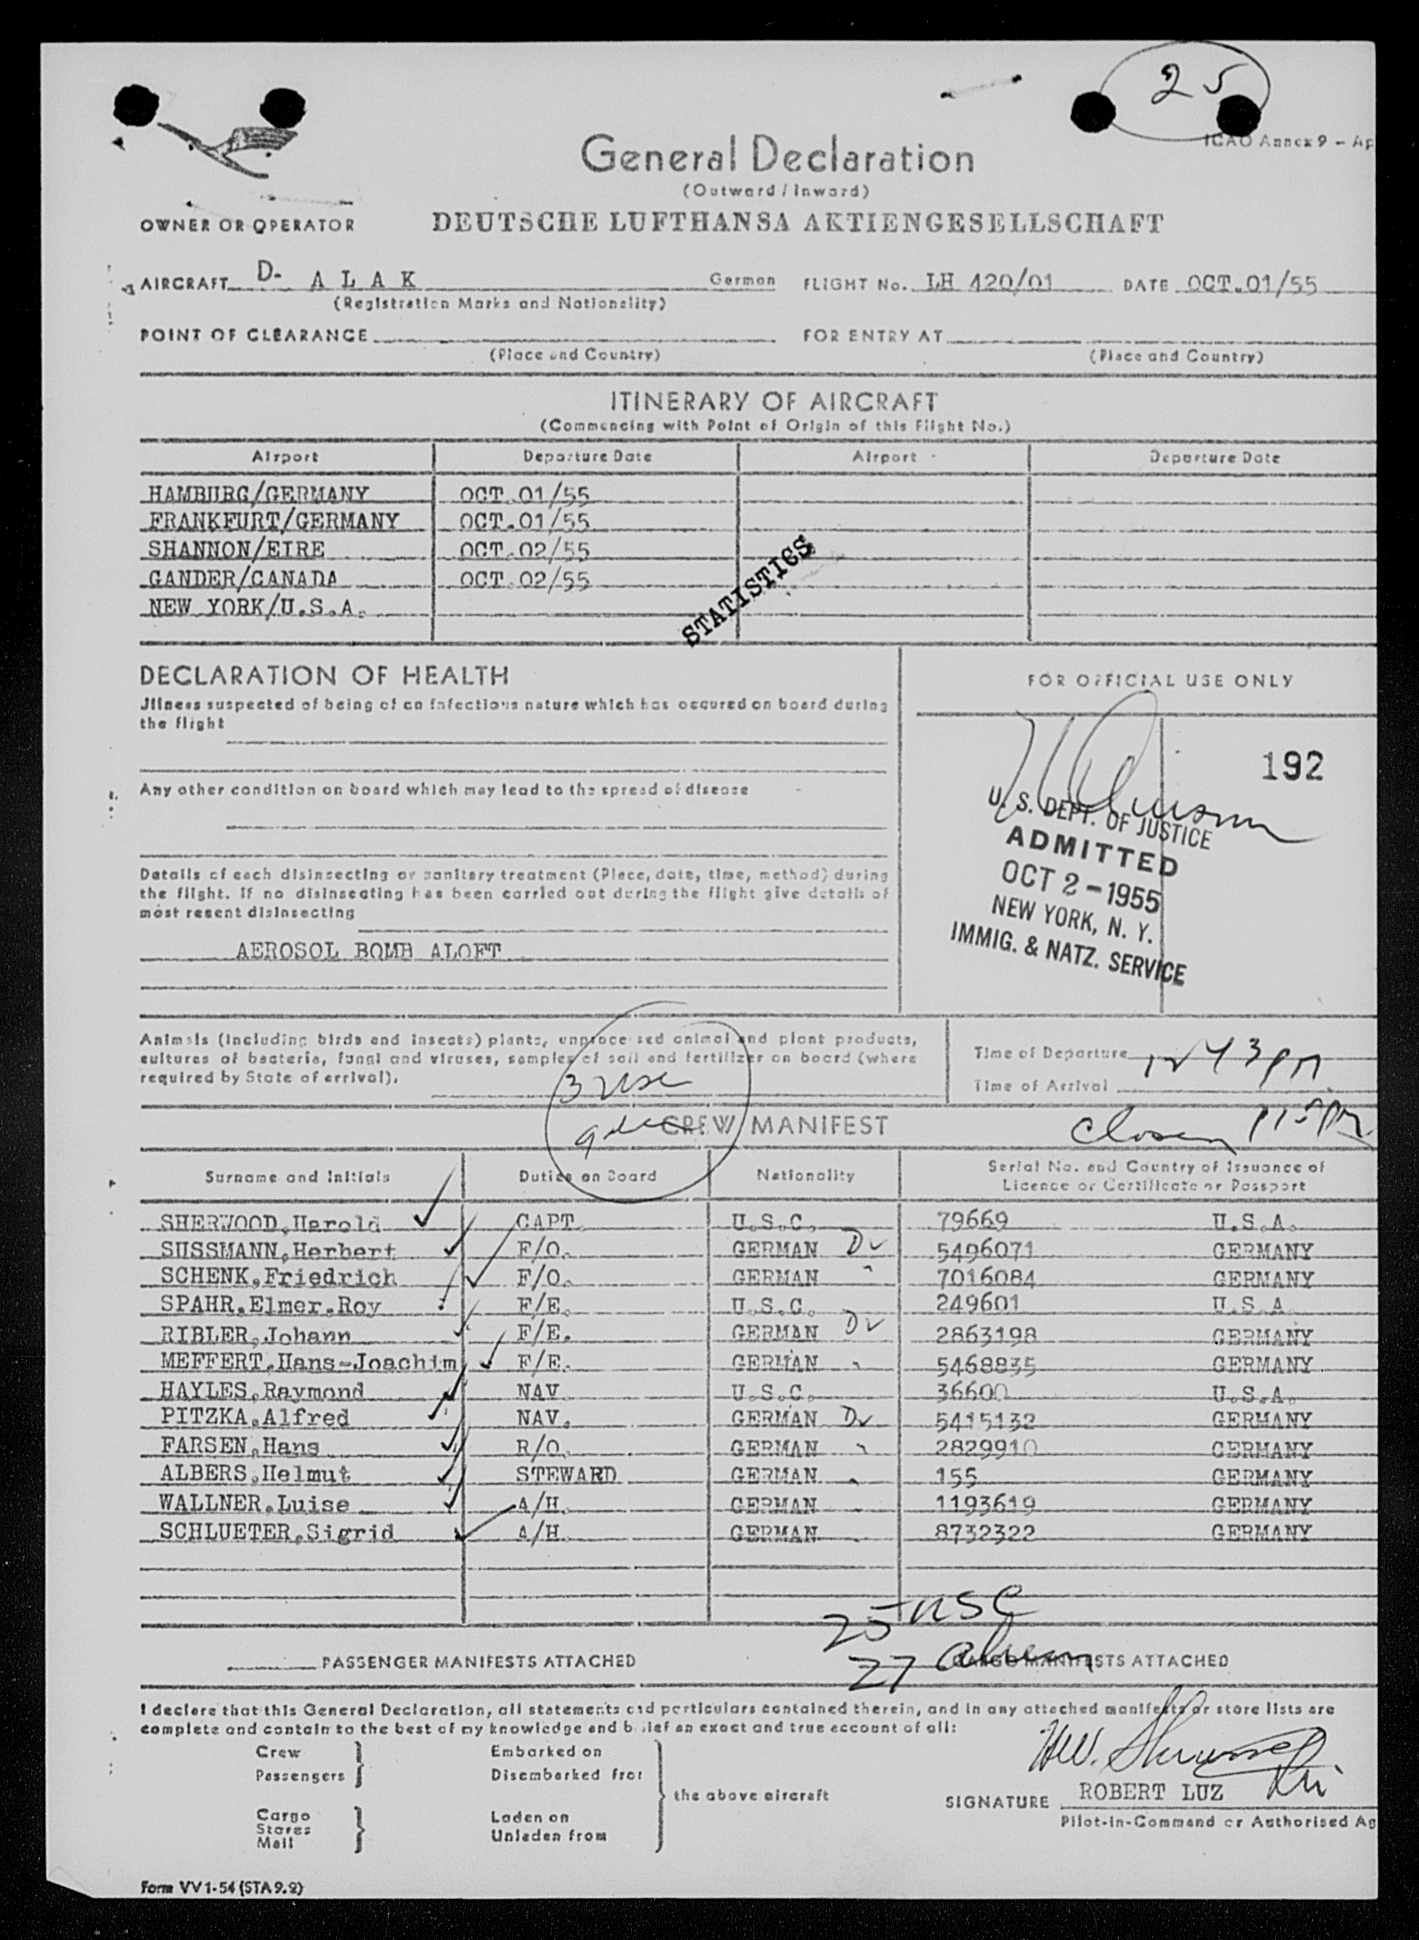 25
ICAO Annex 9 - Ap
General Declaration
(Outward / Inward)
OWNER OR OPERATOR DEUTSCHE LUFTHANSA AKTIENGESELLSCHAFT
AIRCRAFT D- A L A K German FLIGHT No. LH 420/01 DATE OCT.01/55
(Registration Marks and Nationality)
POINT OF CLEARANCE FOR ENTRY AT
(Place and Country) (Place and Country)
ITINERARY OF AIRCRAFT
(Commencing with Point of Origin of this Flight No.)
Airport Departure Date Airport Departure Date
HAMBURG/GERMANY OCT.01/55
FRANKFURT/GERMANY OCT.01/55
SHANNON/EIRE OCT.02/55
GANDER/CANADA OCT.02/55
NEW YORK/U.S.A.
STATISTICS
DECLARATION OF HEALTH
Jllness suspected of being of an infectious nature which has occured on board during
the flight
Any other condition on board which may lead to the spread of disease
Details of each disinsecting or sanitary treatment (Place, date, time, method) during
the flight. If no disinsecting has been carried out during the flight give details of
most resent disinsecting
AEROSOL BOMB ALOFT
FOR OFFICIAL USE ONLY
192
U. S. DEPT. OF JUSTICE
ADMITTED
OCT 2 - 1955
NEW YORK, N. Y.
IMMIG. & NATZ. SERVICE
Animals (including birds and insects) plants, unprocessed animal and plant products,
cultures of bacteria, fungi and viruses, samples of soil and fertilizer on board (where
required by State of arrival).
3 USC
9
Time of Departure 1243 PM
Time of Arrival
CREW MANIFEST
Surname and Initials Duties on Board Nationality Serial No. and Country of Issuance of
Licence or Certificate or Passport
SHERWOOD,Harold CAPT. U.S.C. 79669 U.S.A.
SUSSMANN,Herbert F/O. GERMAN Dv 5496071 GERMANY
SCHENK,Friedrich F/O. GERMAN " 7016084 GERMANY
SPAHR,Elmer.Roy F/E. U.S.C. 249601 U.S.A
RIBLER,Johann F/E. GERMAN Dv 2863198 GERMANY
MEFFERT,Hans-Joachim F/E. GERMAN 5468835 GERMANY
HAYLES,Raymond NAV U.S.C. 36600 U.S.A.
PITZKA,Alfred NAV. GERMAN Dv 5415132 GERMANY
FARSEN,Hans R/O. GERMAN 2829910 GERMANY
ALBERS,Helmut STEWARD GERMAN 155 GERMANY
WALLNER,Luise A/H. GERMAN 1193619 GERMANY
SCHLUETER,Sigrid A/H. GERMAN 8732322 GERMANY
25 USC
27 alien
PASSENGER MANIFESTS ATTACHED CARGO MANIFESTS ATTACHED
I declare that this General Declaration, all statements and particulars contained therein, and in any attached manifests or store lists are
complete and contain to the best of my knowledge and belief an exact and true account of all:
Crew Embarked on
Passengers Disembarked from
the above aircraft
Cargo Laden on
Stores
Mail Unladen from
SIGNATURE ROBERT LUZ
Pilot-in-Command or Authorised Ag
Form VV 1-54 (STA 9.2)